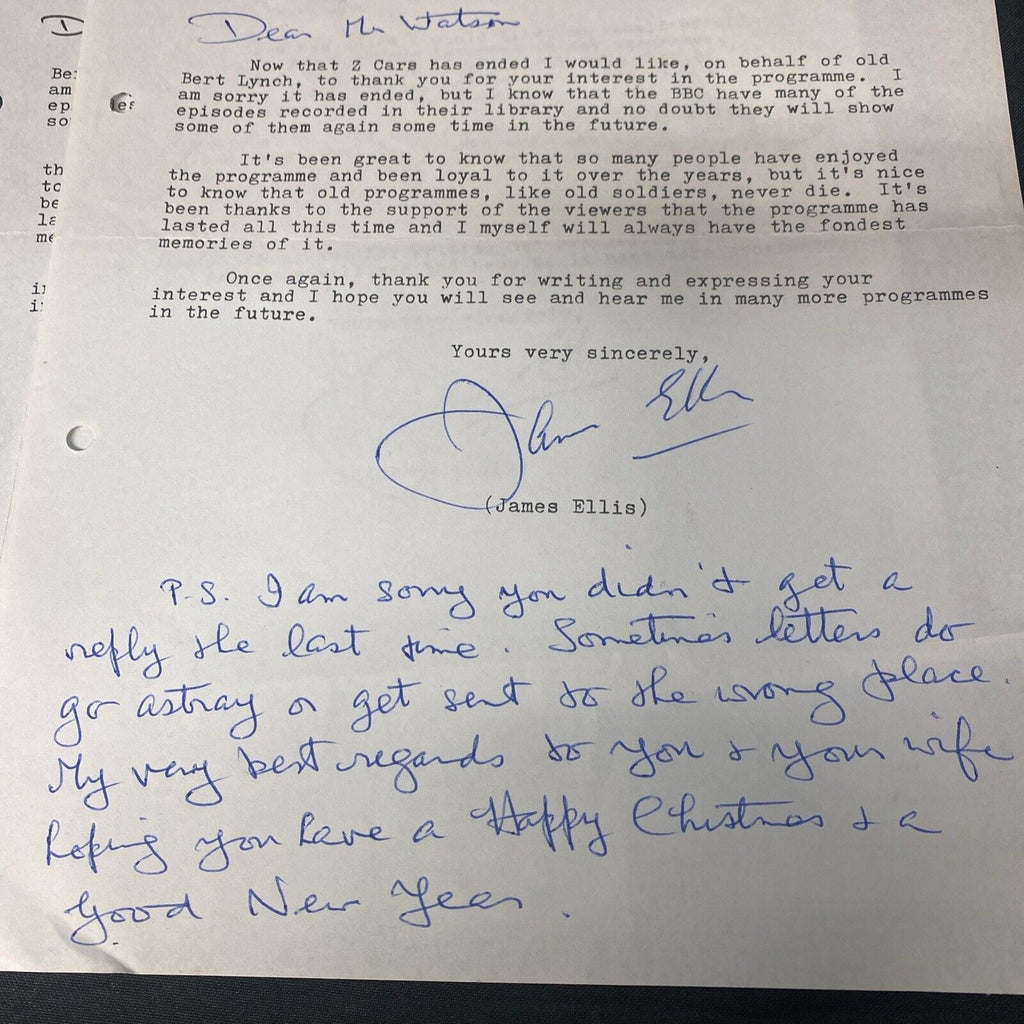 Dear Mr Watson
Now that Z Cars has ended I would like, on behalf of old
Bert Lynch, to thank you for your interest in the programme. I
am sorry it has ended, but I know that the BBC have many of the
episodes recorded in their library and no doubt they will show
some of them again some time in the future.
It's been great to know that so many people have enjoyed
the programme and been loyal to it over the years, but it's nice
to know that old programmes, like old soldiers, never die. It's
been thanks to the support of the viewers that the programme has
lasted all this time and I myself will always have the fondest
memories of it.
Once again, thank you for writing and expressing your
interest and I hope you will see and hear me in many more programmes
in the future.
Yours very sincerely,
James Ellis
(James Ellis)
P.S. I am sorry you didn't get a
reply the last time. Sometimes letters do
go astray or get sent to the wrong place.
My very best regards to you & your wife
hoping you have a Happy Christmas & a
Good New Year.